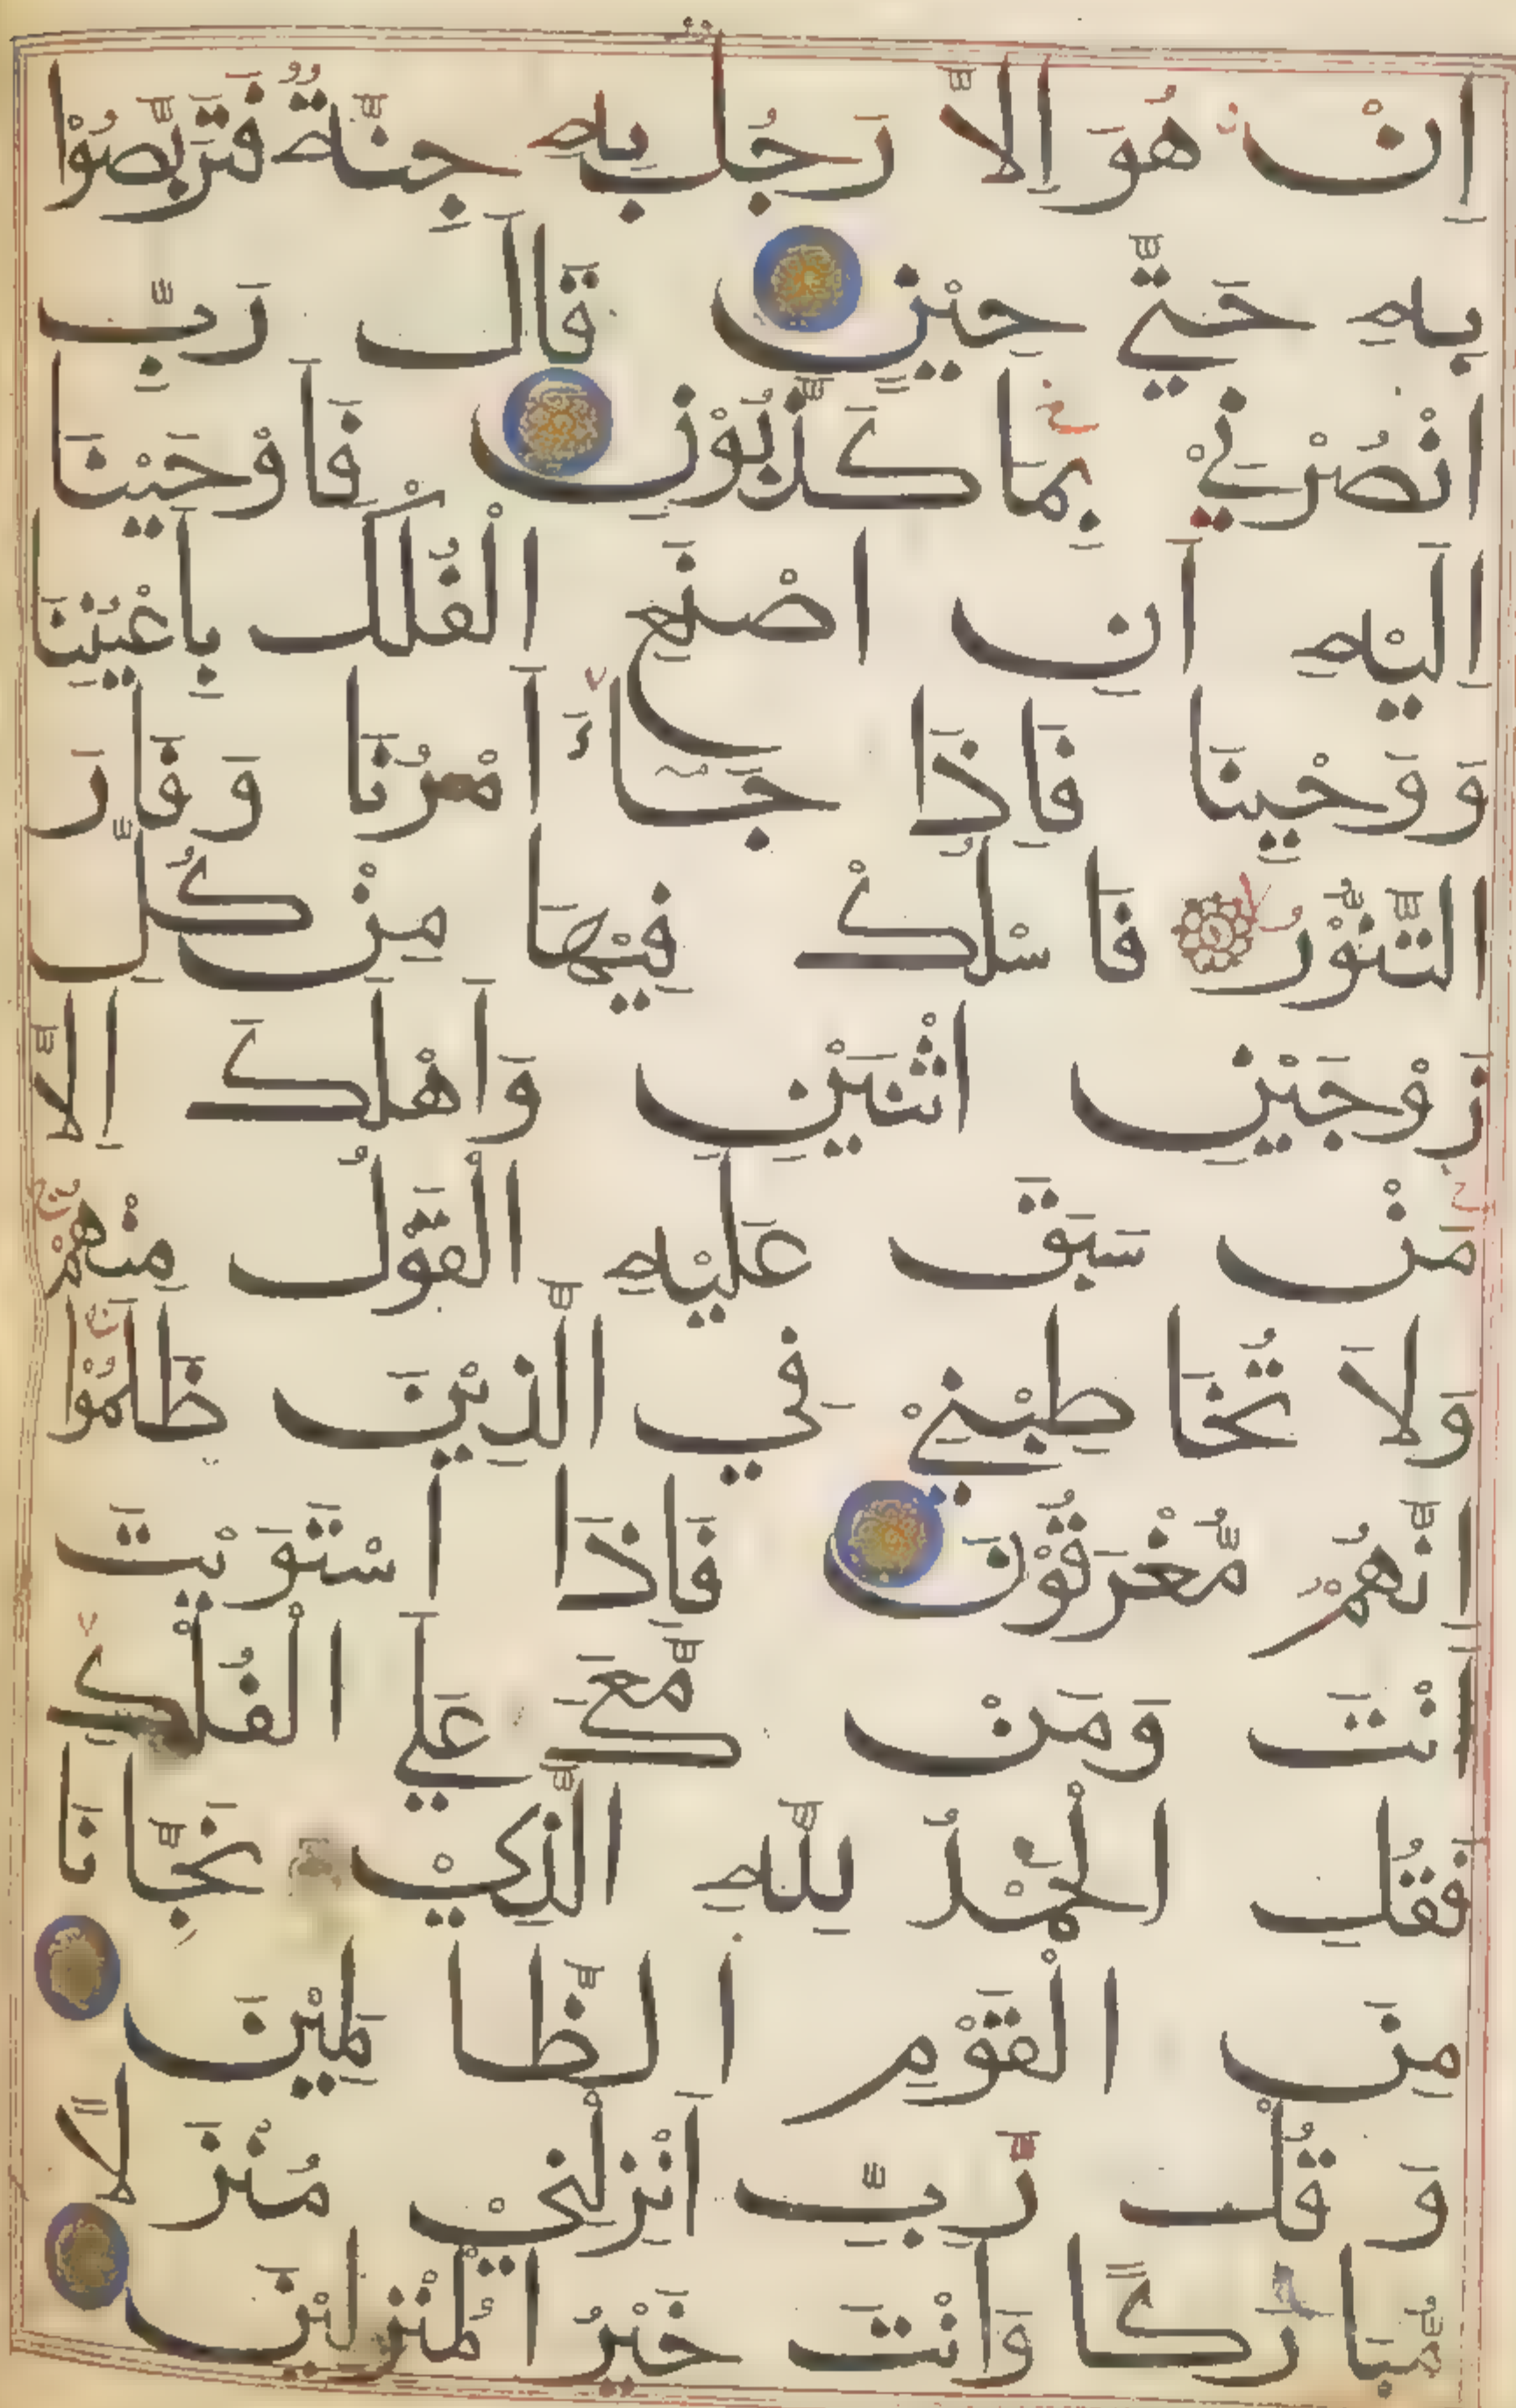 اِنْ هُوَ اِلَّا رَجُلٌ بِهِ جِنَّةٌ فَتَرَبَّصُوْا
بِهِ حَتّٰي حِيْنٍ قَالَ رَبِّ
انْصُرْنِيْ بِمَا كَذَّبُوْنِ فَاَوْحَيْنَا
اِلَيْهِ اَنِ اصْنَعِ الْفُلْكَ بِاَعْيُنِنَا
وَوَحْيِنَا فَاِذَا جَآءَ اَمْرُنَا وَفَارَ
التَّنُّوْرُ فَاسْلُكْ فِيْهَا مِنْ كُلٍّ
زَوْجَيْنِ اثْنَيْنِ وَاَهْلَكَ اِلَّا
مَنْ سَبَقَ عَلَيْهِ الْقَوْلُ مِنْهُمْ
وَلَا تُخَاطِبْنِيْ فِي الَّذِيْنَ ظَلَمُوْا
اِنَّهُمْ مُّغْرَقُوْنَ فَاِذَا اسْتَوَيْتَ
اَنْتَ وَمَنْ مَّعَكَ عَلَي الْفُلْكِ
فَقُلِ الْحَمْدُ لِلّٰهِ الَّذِيْ نَجَّانَا
مِنَ الْقَوْمِ الظَّالِمِيْنَ
وَقُلْ رَّبِّ اَنْزِلْنِيْ مُنْزَلًا
مُّبَارَكًا وَاَنْتَ خَيْرُ الْمُنْزِلِيْنَ